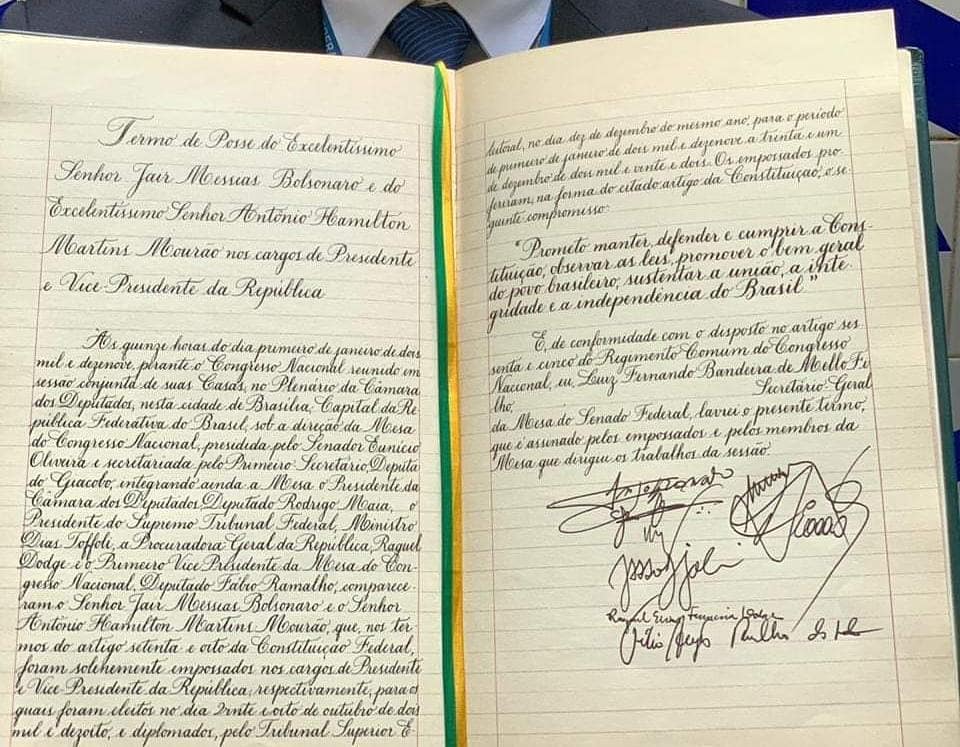 Termo de Posse do Excelentíssimo
Senhor Jair Messias Bolsonaro e do
Excelentíssimo Senhor Antônio Hamilton
Martins Mourão nos cargos de Presidente
e Vice-Presidente da República
Às quinze horas do dia primeiro de janeiro de dois
mil e dezenove, perante o Congresso Nacional reunido em
sessão conjunta de suas Casas, no Plenário da Câmara
dos Deputados, nesta cidade de Brasília, Capital da Re-
pública Federativa do Brasil, sob a direção da Mesa
do Congresso Nacional, presidida pelo Senador Eunício
Oliveira e secretariada pelo Primeiro Secretário, Deputa-
do Giacobo, integrando ainda a Mesa o Presidente da
Câmara dos Deputados Deputado Rodrigo Maia, o
Presidente do Supremo Tribunal Federal, Ministro
Dias Toffoli, a Procuradora Geral da República, Raquel
Dodge e o Primeiro Vice Presidente da Mesa do Con-
gresso Nacional, Deputado Fábio Ramalho, comparece-
ram o Senhor Jair Messias Bolsonaro e o Senhor
Antônio Hamilton Martins Mourão, que, nos ter-
mos do artigo setenta e oito da Constituição Federal,
foram solenemente empossados nos cargos de Presidente
e Vice-Presidente da República, respectivamente, para os
quais foram eleitos no dia vinte e oito de outubro de dois
mil e dezoito, e diplomados, pelo Tribunal Superior E-
leitoral, no dia dez de dezembro do mesmo ano, para o período
de primeiro de janeiro de dois mil e dezenove a trinta e um
de dezembro de dois mil e vinte e dois. Os empossados pro-
feriram, na forma do citado artigo da Constituição, o se-
guinte compromisso:
"Prometo manter, defender e cumprir a Cons-
tituição, observar as leis, promover o bem geral
do povo brasileiro, sustentar a união, a inte-
gridade e a independência do Brasil"
E, de conformidade com o disposto no artigo ses-
senta e cinco do Regimento Comum do Congresso
Nacional, eu, Luiz Fernando Bandeira de Mello Fi-
lho, Secretário Geral
da Mesa do Senado Federal, lavrei o presente termo,
que é assinado pelos empossados e pelos membros da
Mesa que dirigiu os trabalhos da sessão.